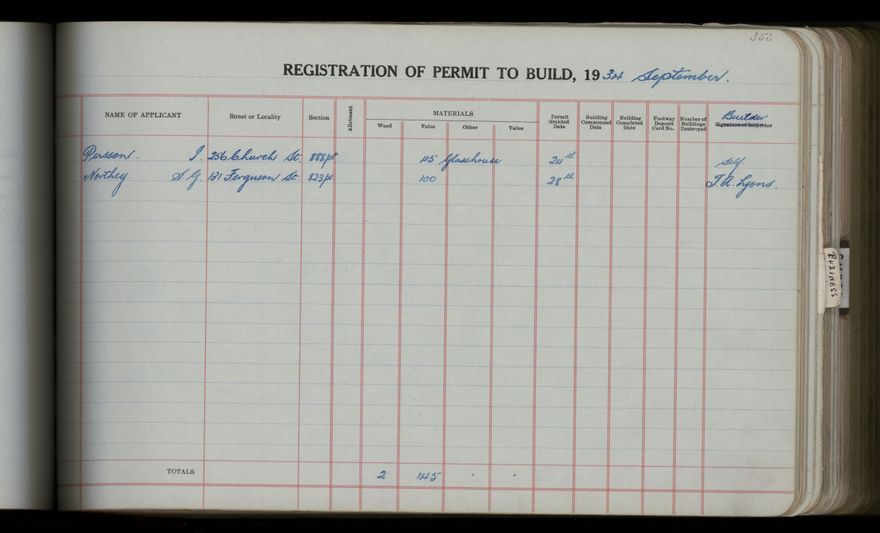 353
REGISTRATION OF PERMIT TO BUILD, 1934 September.
NAME OF APPLICANT Street or Locality Section Allotment MATERIALS Permit Granted Date Building Commenced Date Building Completed Date Footway Deposit Card No. Number of Buildings Destroyed Builder Signature of Inspector
Wood Value Other Value
Persson. I. 256 Church St. 888pt 45 Glasshouse 24th self
Northey. S. G. 131 Ferguson St. 823pt 100 28th T. A. Lyons.
TOTALS 2 145 . .
BUSINESS